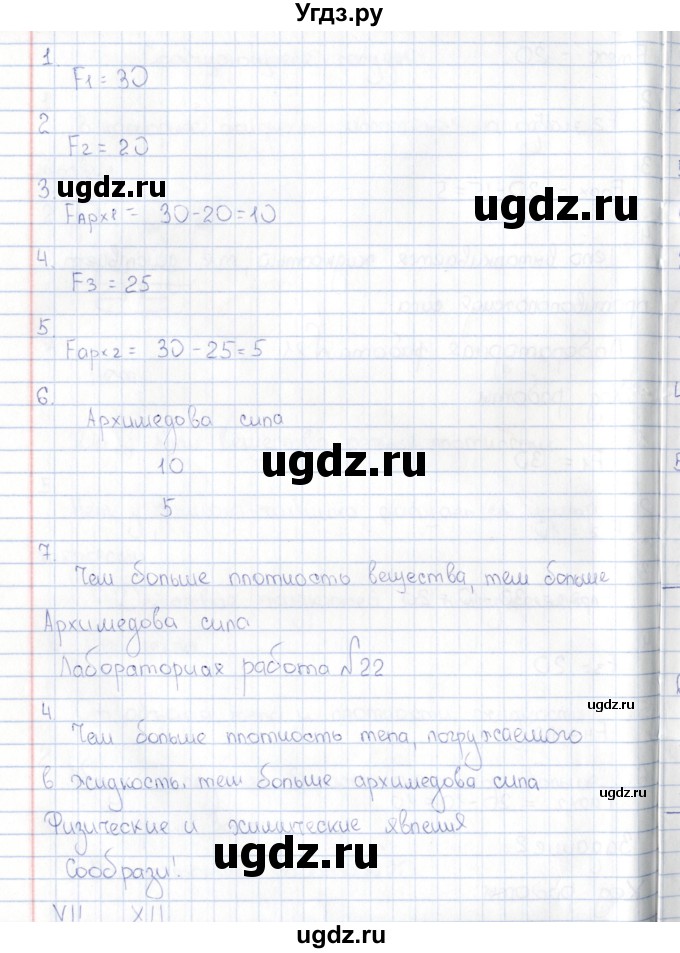 Угдз.ру
1.
F1 = 30
2
F2 = 20
3
ugdz.ru
ugdz.ru
FАрх1 = 30-20=10
4.
F3 = 25
5.
Fарх2 = 30-25=5
6.
Архимедова сила
ugdz.ru
10
5
7.
Чем больше плотность вещества, тем больше
Архимедова сила
Лабораторная работа №22
ugdz.ru
4.
Чем больше плотность тела, погружаемого
в жидкость, тем больше архимедова сила
ugdz.ru
Физические и химические явления
ugdz.ru
Сообрази!
VII XII
ugdz.ru